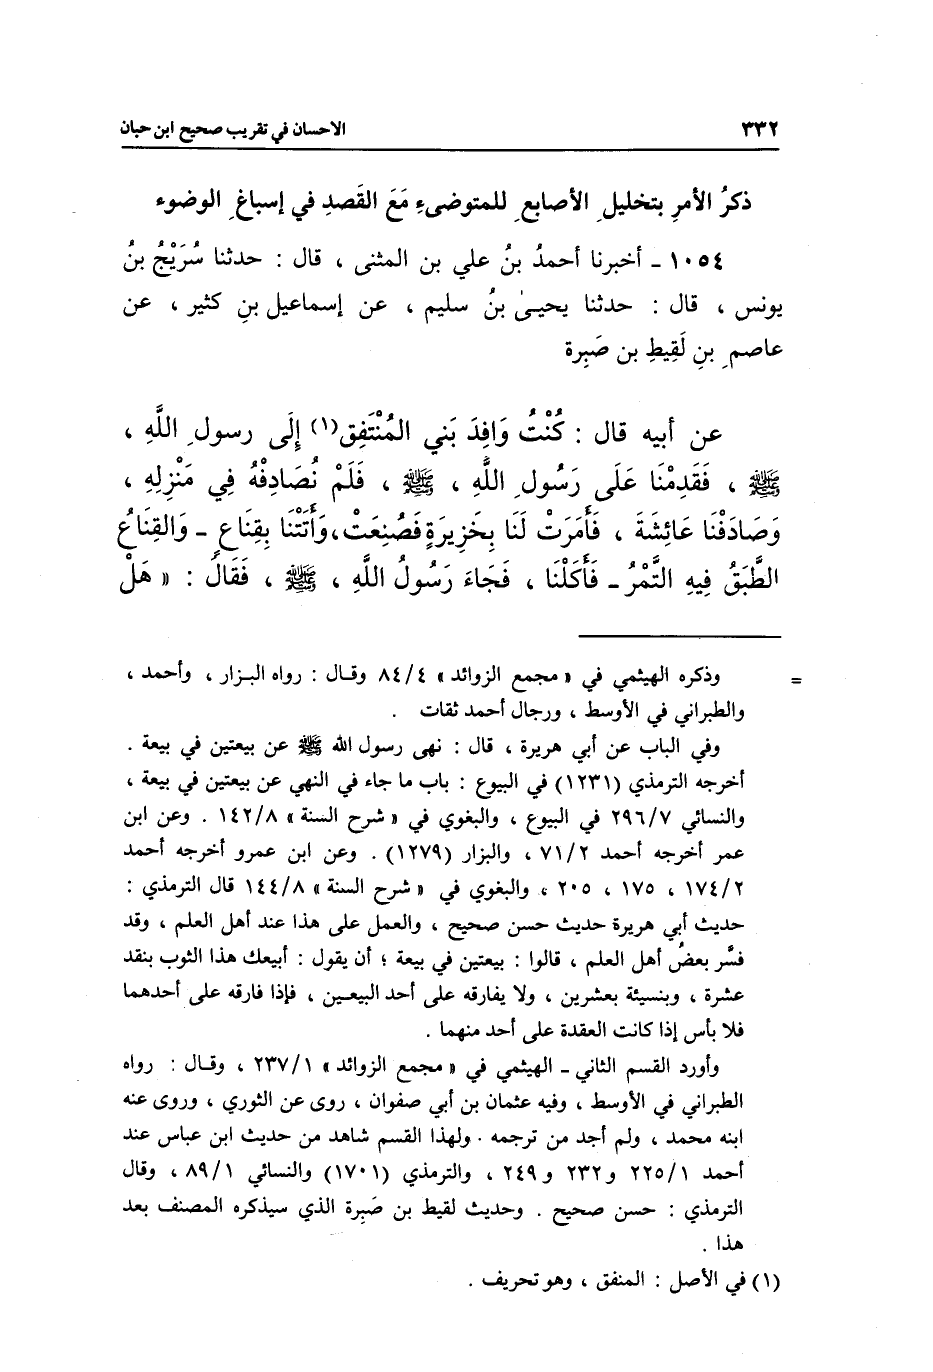 ٣٣٢
الاحسان في تقريب صحيح ابن حبان
ذكرُ الأمرِ بتخليلِ الأصابعِ للمتوضىءِ مَعَ القَصدِ في إسباغِ الوضوء
١٠٥٤ ـ أخبرنا أحمدُ بنُ علي بن المثنى ، قال : حدثنا سُرَيْجُ بنُ
يونس ، قال : حدثنا يحيىٰ بنُ سليم ، عن إسماعيل بنِ كثير ، عن
عاصمِ بنِ لَقِيطِ بن صَبِرة
عن أبيه قال : كُنْتُ وَافِدَ بَني المُنْتَفِق(١) إِلَى رسولِ اللَّهِ ،
ﷺ ، فَقَدِمْنَا عَلَى رَسُولِ اللَّهِ ، ﷺ ، فَلَمْ نُصَادِفْهُ فِي مَنْزِلِهِ ،
وَصَادَفْنَا عَائِشَةَ ، فَأَمَرَتْ لَنَا بِخَزِيرَةٍ فَصُنِعَتْ، وَأَتَتْنَا بِقِنَاعٍ ـ وَالقِنَاعُ
الطَّبَقُ فِيهِ التَّمْرُ ـ فَأَكَلْنَا ، فَجَاءَ رَسُولُ اللَّهِ ، ﷺ ، فَقَالَ : « هَلْ
= وذكره الهيثمي في « مجمع الزوائد » ٨٤/٤ وقال : رواه البزار ، وأحمد ،
والطبراني في الأوسط ، ورجال أحمد ثقات .
وفي الباب عن أبي هريرة ، قال : نهى رسول الله ﷺ عن بيعتين في بيعة .
أخرجه الترمذي (١٢٣١) في البيوع : باب ما جاء في النهي عن بيعتين في بيعة ،
والنسائي ٢٩٦/٧ في البيوع ، والبغوي في « شرح السنة » ١٤٢/٨ . وعن ابن
عمر أخرجه أحمد ٧١/٢ ، والبزار (١٢٧٩) . وعن ابن عمرو أخرجه أحمد
١٧٤/٢ ، ١٧٥ ، ٢٠٥ ، والبغوي في « شرح السنة » ١٤٤/٨ قال الترمذي :
حديث أبي هريرة حديث حسن صحيح ، والعمل على هذا عند أهل العلم ، وقد
فسَّر بعضُ أهل العلم ، قالوا : بيعتين في بيعة ؛ أن يقول : أبيعك هذا الثوب بنقد
عشرة ، وبنسيئة بعشرين ، ولا يفارقه على أحد البيعين ، فإذا فارقه على أحدهما
فلا بأس إذا كانت العقدة على أحد منهما .
وأورد القسم الثاني ـ الهيثمي في « مجمع الزوائد » ٢٣٧/١ ، وقال : رواه
الطبراني في الأوسط ، وفيه عثمان بن أبي صفوان ، روى عن الثوري ، وروى عنه
ابنه محمد ، ولم أجد من ترجمه . ولهذا القسم شاهد من حديث ابن عباس عند
أحمد ٢٢٥/١ و ٢٣٢ و ٢٤٩ ، والترمذي (١٧٠١) والنسائي ٨٩/١ ، وقال
الترمذي : حسن صحيح . وحديث لقيط بن صَبِرة الذي سيذكره المصنف بعد
هذا .
(١) في الأصل : المنفق ، وهو تحريف .